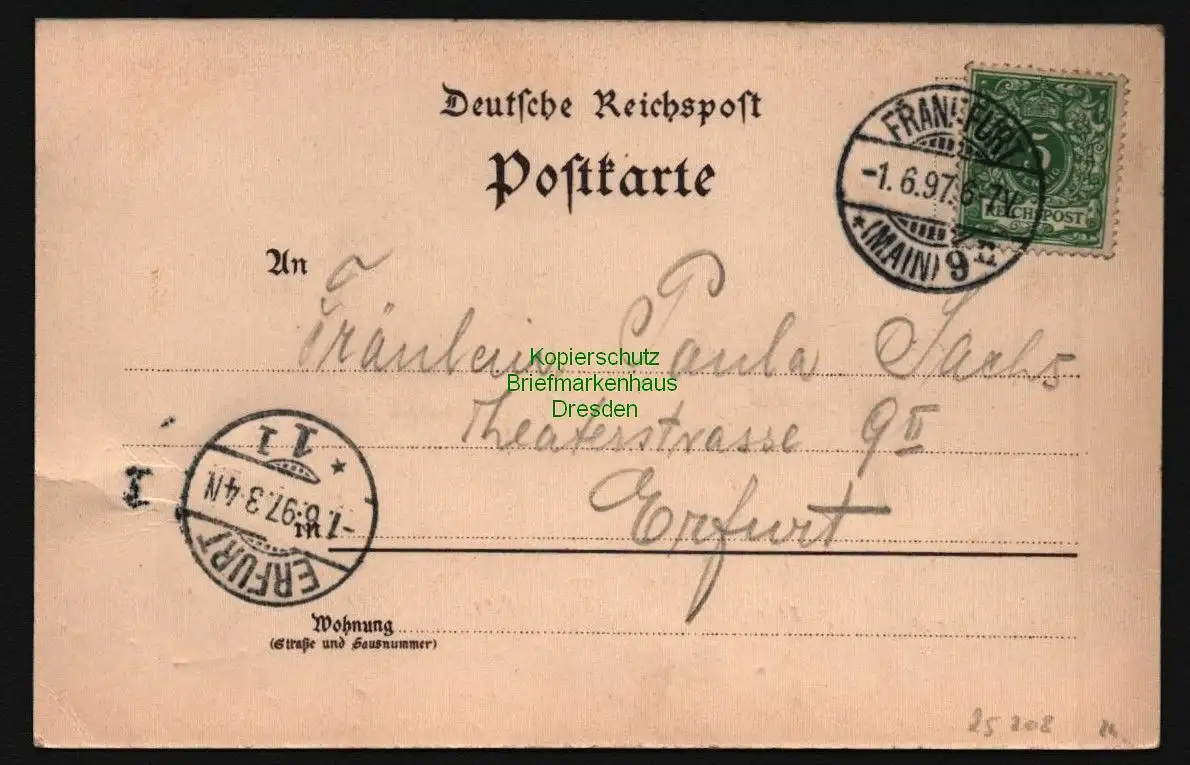 Deutsche Reichspost
Postkarte
FRANKFURT
-1.6.97. 6-7V.
* (MAIN) 9 n
5
REICHSPOST
An
Fräulein Paula Sachs
Kopierschutz
Briefmarkenhaus
Dresden
Theaterstrasse 9 II
Erfurt
in
ERFURT
-1.6.97. 3-4N
* 1 1
Wohnung
(Straße und Hausnummer)
25 208